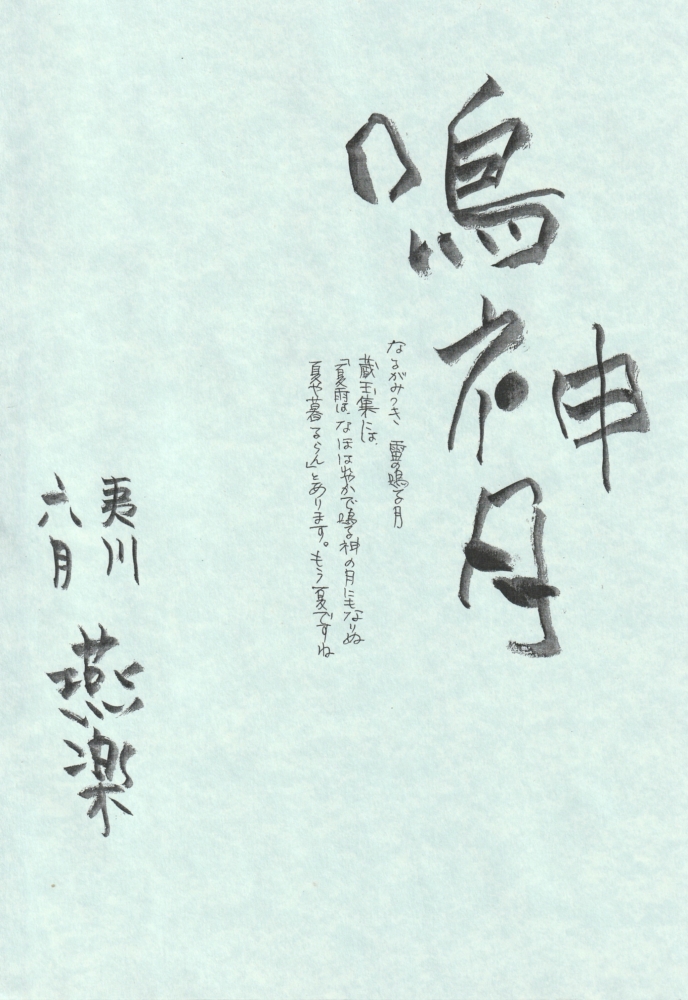 鳴神月
なるがみつき　雷の鳴る月
蔵玉集には、
「夏雨は、なほはやかで鳴る神の月にもなりぬ
夏や暮るらん」とあります。もう夏ですね
夷川
六月
燕楽